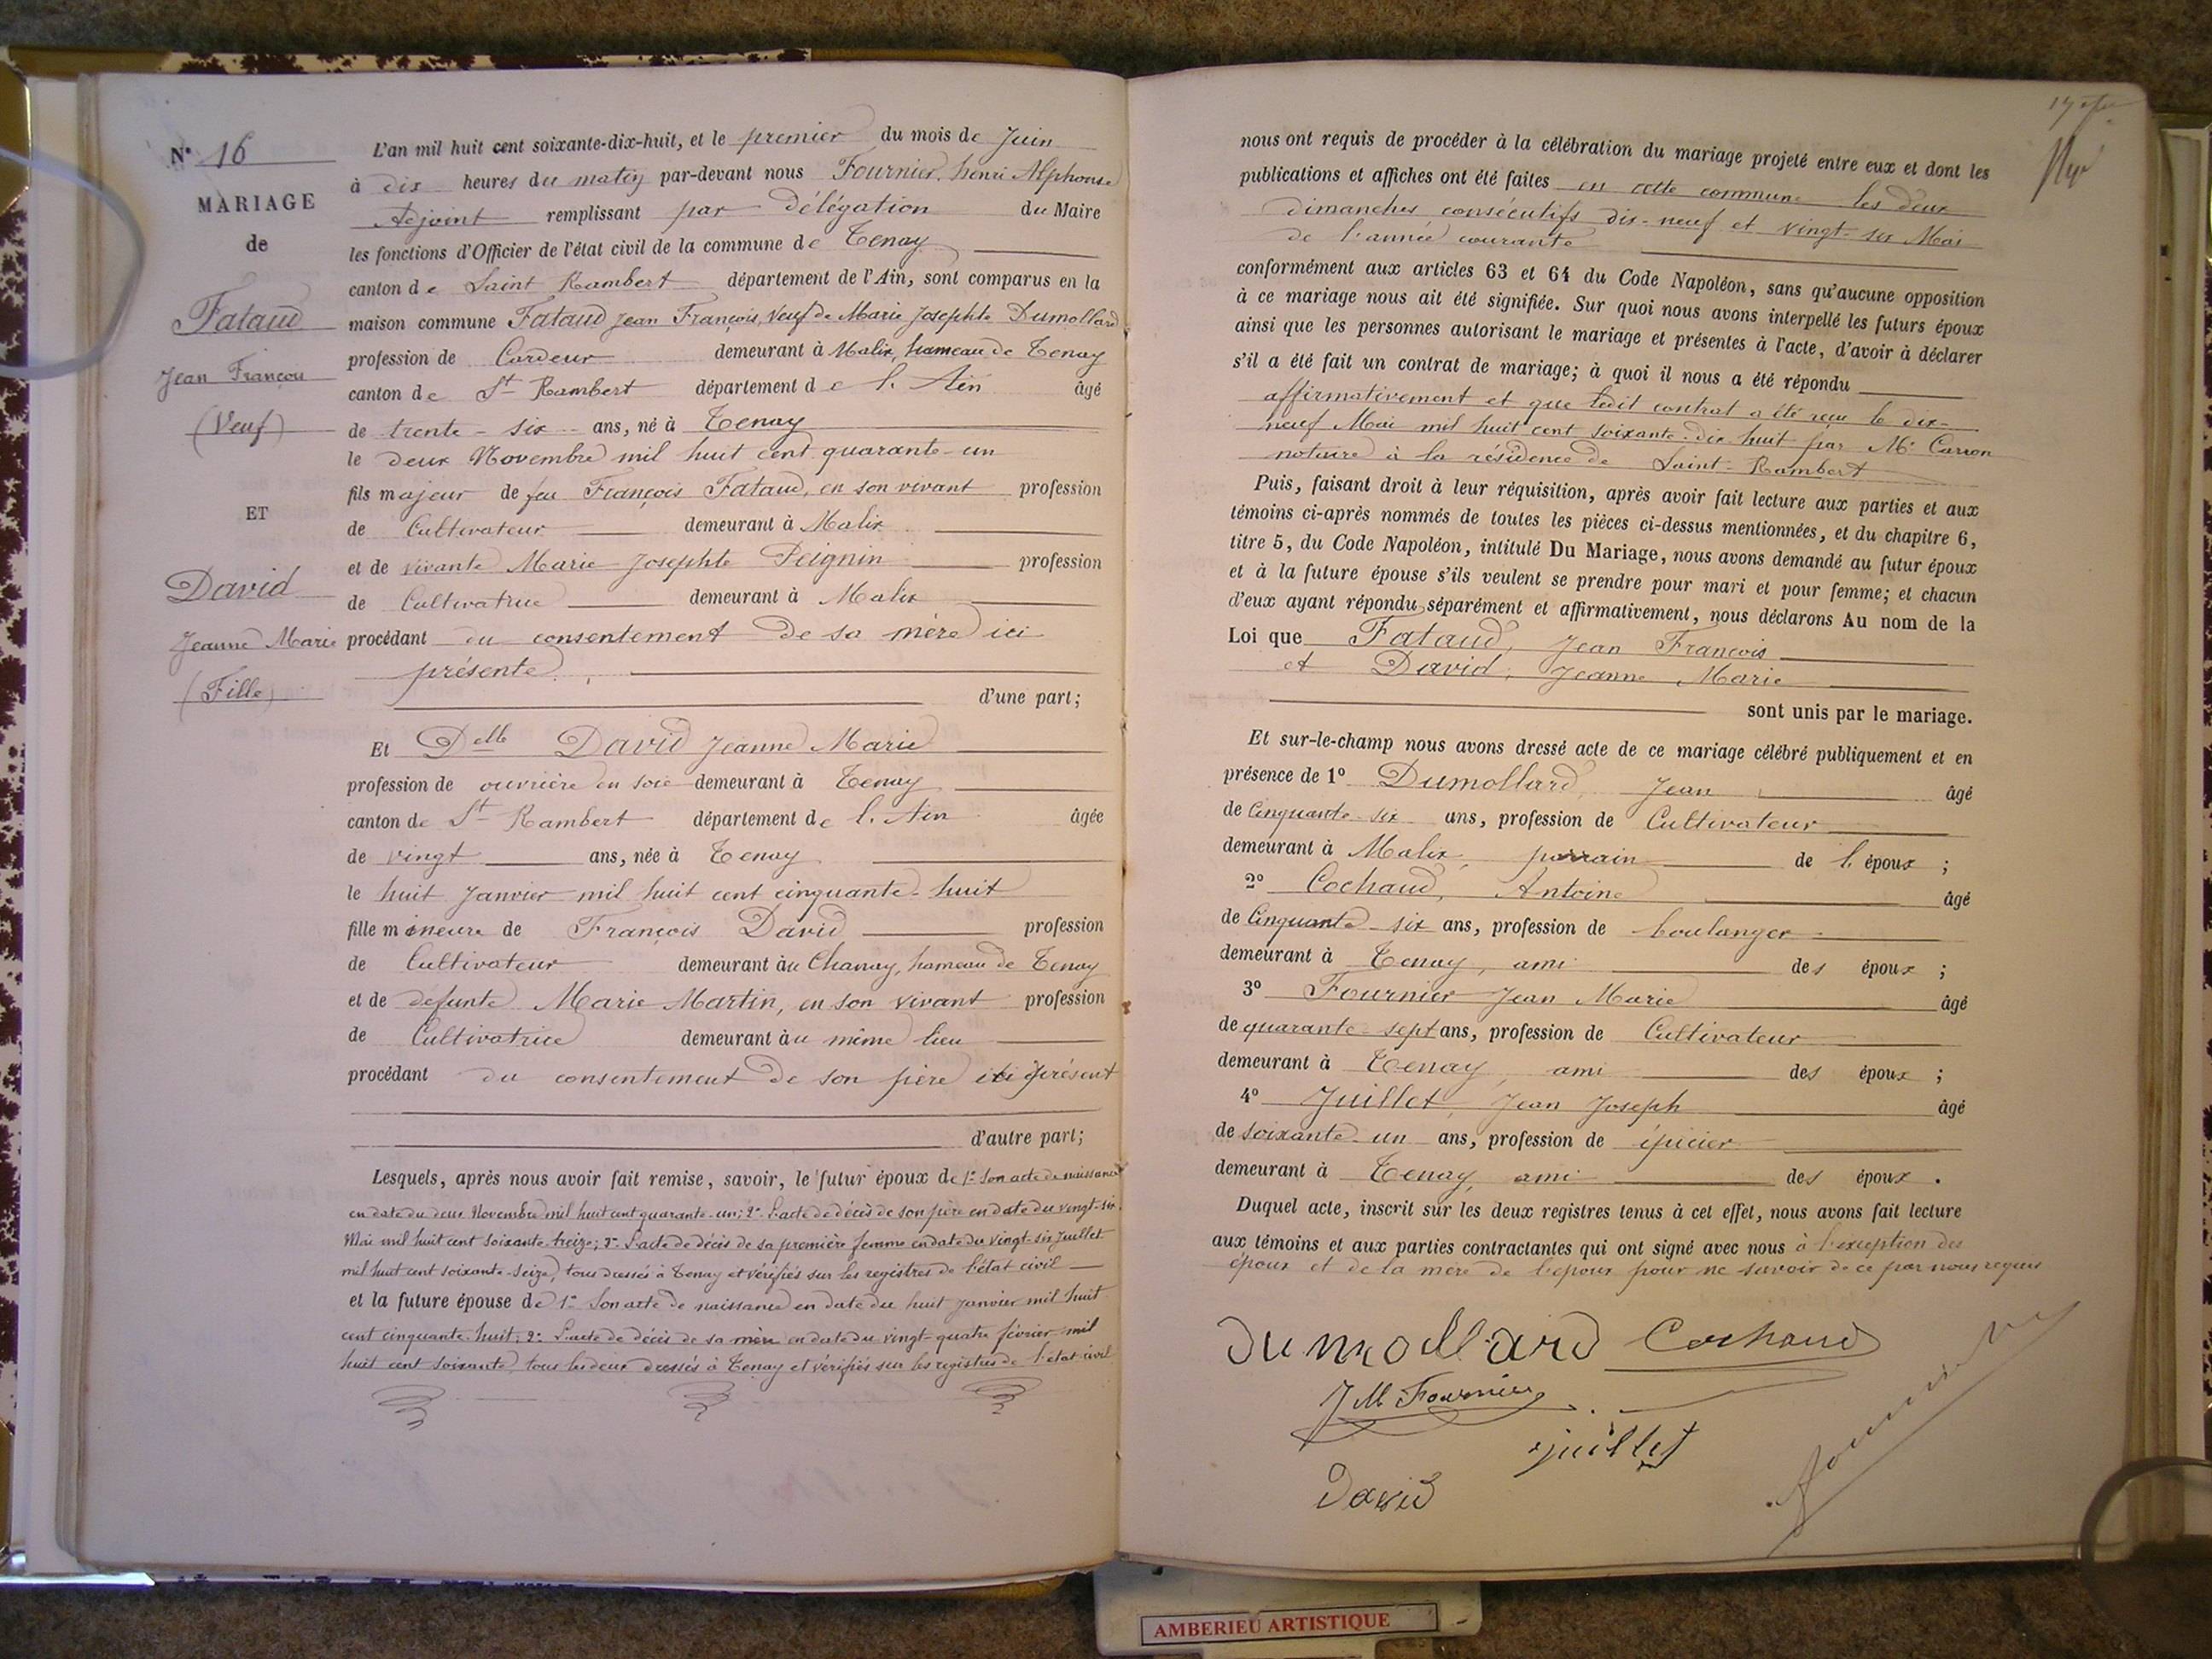 N° 16
MARIAGE
de
Fataud
Jean François
(Veuf)
ET
David
Jeanne Marie
(Fille)
L'an mil huit cent soixante-dix-huit, et le premier du mois de Juin
à dix heures du matin par-devant nous Fournier, henri Alphonse
Adjoint remplissant par délégation du Maire
les fonctions d'Officier de l'état civil de la commune de Tenay
canton de Saint Rambert département de l'Ain, sont comparus en la
maison commune Fataud Jean François, Veuf de Marie Josephte Dumollard
profession de Cardeur demeurant à Malix, hameau de Tenay
canton de St Rambert département de l'Ain âgé
de trente-six ans, né à Tenay
le deux Novembre mil huit cent quarante-un
fils majeur de feu François Fataud, en son vivant profession
de Cultivateur demeurant à Malix
et de vivante Marie Josephte Peignin profession
de Cultivatrice demeurant à Malix
procédant du consentement de sa mère ici
présente
d'une part;
Et Delle David Jeanne Marie
profession de ouvrière en soie demeurant à Tenay
canton de St Rambert département de l'Ain âgée
de vingt ans, née à Tenay
le huit Janvier mil huit cent cinquante-huit
fille mineure de François David profession
de Cultivateur demeurant au Chanay, hameau de Tenay
et de défunte Marie Martin, en son vivant profession
de Cultivatrice demeurant au même lieu
procédant du consentement de son père ici présent
d'autre part;
Lesquels, après nous avoir fait remise, savoir, le futur époux de 1° Son acte de naissance
en date du deux Novembre mil huit cent quarante-un; 2° L'acte de décès de son père en date du vingt-six
Mai mil huit cent soixante-treize; 3° L'acte de décès de sa première femme en date du vingt-six Juillet
mil huit cent soixante-seize, tous dressés à Tenay et vérifiés sur les registres de l'état civil
et la future épouse de 1° Son acte de naissance en date du huit Janvier mil huit
cent cinquante-huit; 2° L'acte de décès de sa mère en date du vingt-quatre février mil
huit cent soixante, tous les deux dressés à Tenay et vérifiés sur les registres de l'état civil
nous ont requis de procéder à la célébration du mariage projeté entre eux et dont les
publications et affiches ont été faites en cette commune les deux
dimanches consécutifs dix-neuf et vingt-six Mai
de l'année courante
conformément aux articles 63 et 64 du Code Napoléon, sans qu'aucune opposition
à ce mariage nous ait été signifiée. Sur quoi nous avons interpellé les futurs époux
ainsi que les personnes autorisant le mariage et présentes à l'acte, d'avoir à déclarer
s'il a été fait un contrat de mariage; à quoi il nous a été répondu
affirmativement et que ledit contrat a été reçu le dix-
neuf Mai mil huit cent soixante-dix huit par Me Carron
notaire à la résidence de Saint-Rambert
Puis, faisant droit à leur réquisition, après avoir fait lecture aux parties et aux
témoins ci-après nommés de toutes les pièces ci-dessus mentionnées, et du chapitre 6,
titre 5, du Code Napoléon, intitulé Du Mariage, nous avons demandé au futur époux
et à la future épouse s'ils veulent se prendre pour mari et pour femme; et chacun
d'eux ayant répondu séparément et affirmativement, nous déclarons Au nom de la
Loi que Fataud, Jean François
et David, Jeanne Marie
sont unis par le mariage.
Et sur-le-champ nous avons dressé acte de ce mariage célébré publiquement et en
présence de 1° Dumollard, Jean âgé
de Cinquante-six ans, profession de Cultivateur
demeurant à Malix, parrain de l'époux ;
2° Cochaud, Antoine âgé
de Cinquante six ans, profession de boulanger
demeurant à Tenay, ami des époux ;
3° Fournier Jean Marie âgé
de quarante-sept ans, profession de Cultivateur
demeurant à Tenay, ami des époux ;
4° Juillet, Jean Joseph âgé
de soixante un ans, profession de épicier
demeurant à Tenay, ami des époux .
Duquel acte, inscrit sur les deux registres tenus à cet effet, nous avons fait lecture
aux témoins et aux parties contractantes qui ont signé avec nous à l'exception des
époux et de la mère de l'époux pour ne savoir de ce par nous requis
Dumollard Cochaud
J M Fournier
juillet
David
fournier
AMBERIEU ARTISTIQUE